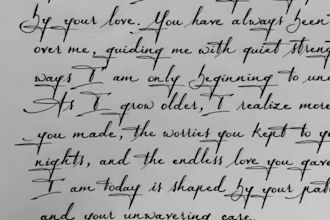 by your love. You have always been
over me, guiding me with quiet stren
ways I am only beginning to un
As I grow older, I realize more
you made, the worries you kept to yo
nights, and the endless love you gave
I am today is shaped by your pati
and your unwavering care.